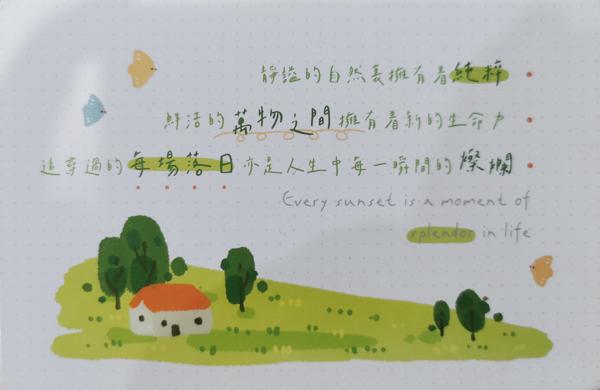 靜謐的自然裏擁有着純粹
鮮活的萬物之間擁有着新的生命力
追尋過的每場落日亦是人生中每一瞬間的燦爛
Every sunset is a moment of
splendor in life